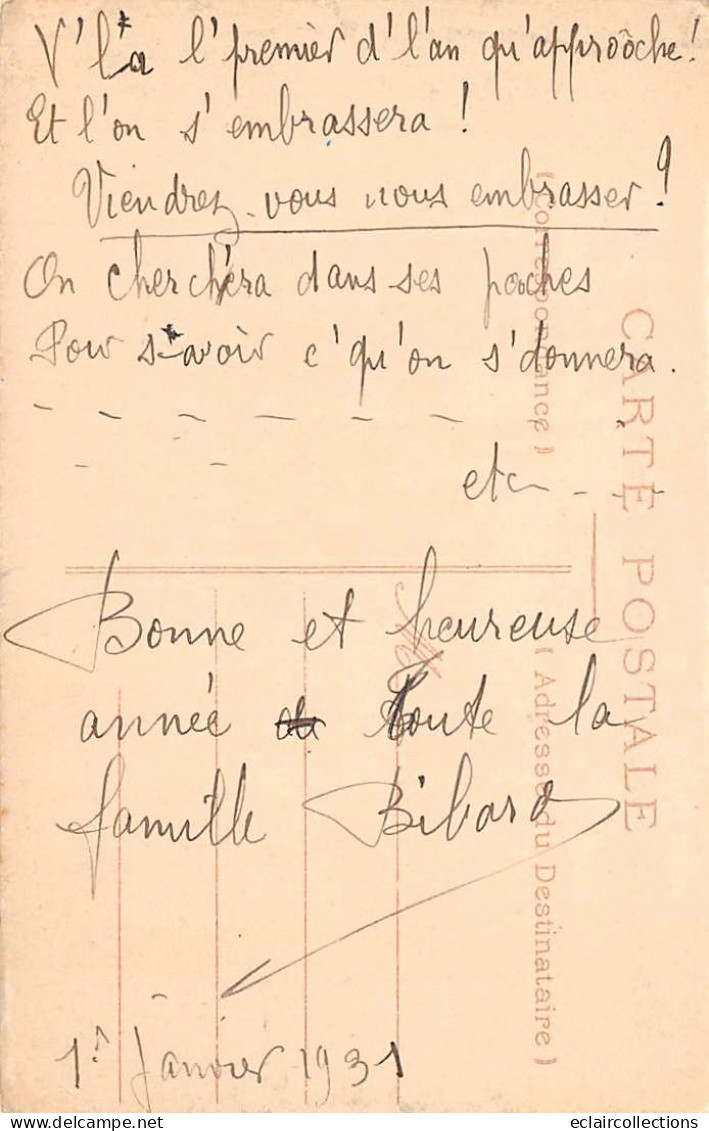 V'l'a l'premier d'l'an qu'approôche!
Et l'on s'embrassera!
Viendrez-vous nous embrasser?
On cherchera dans ses poches
Pour s'avoir c'qu'on s'donnera.
etc
Bonne et heureuse
année de toute la
famille Bibard
1er Janvier 1931
CARTE POSTALE
(Correspondance)
(Adresse du Destinataire)
eclaircollections